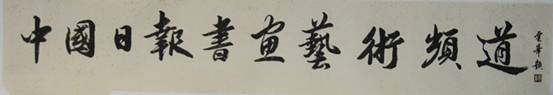 中國日報書畫藝術頻道